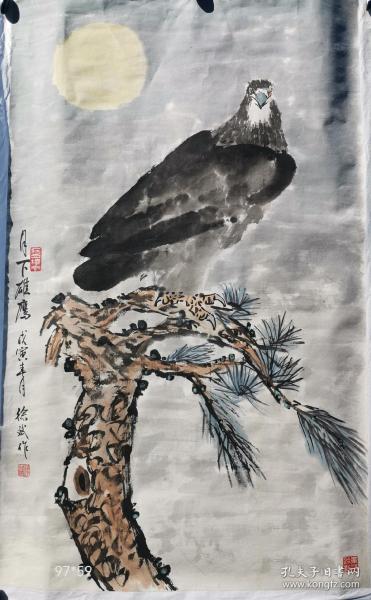 月下雄鹰
戊寅年月
徐斌作
97*59
孔夫子旧书网
www.kongfz.com